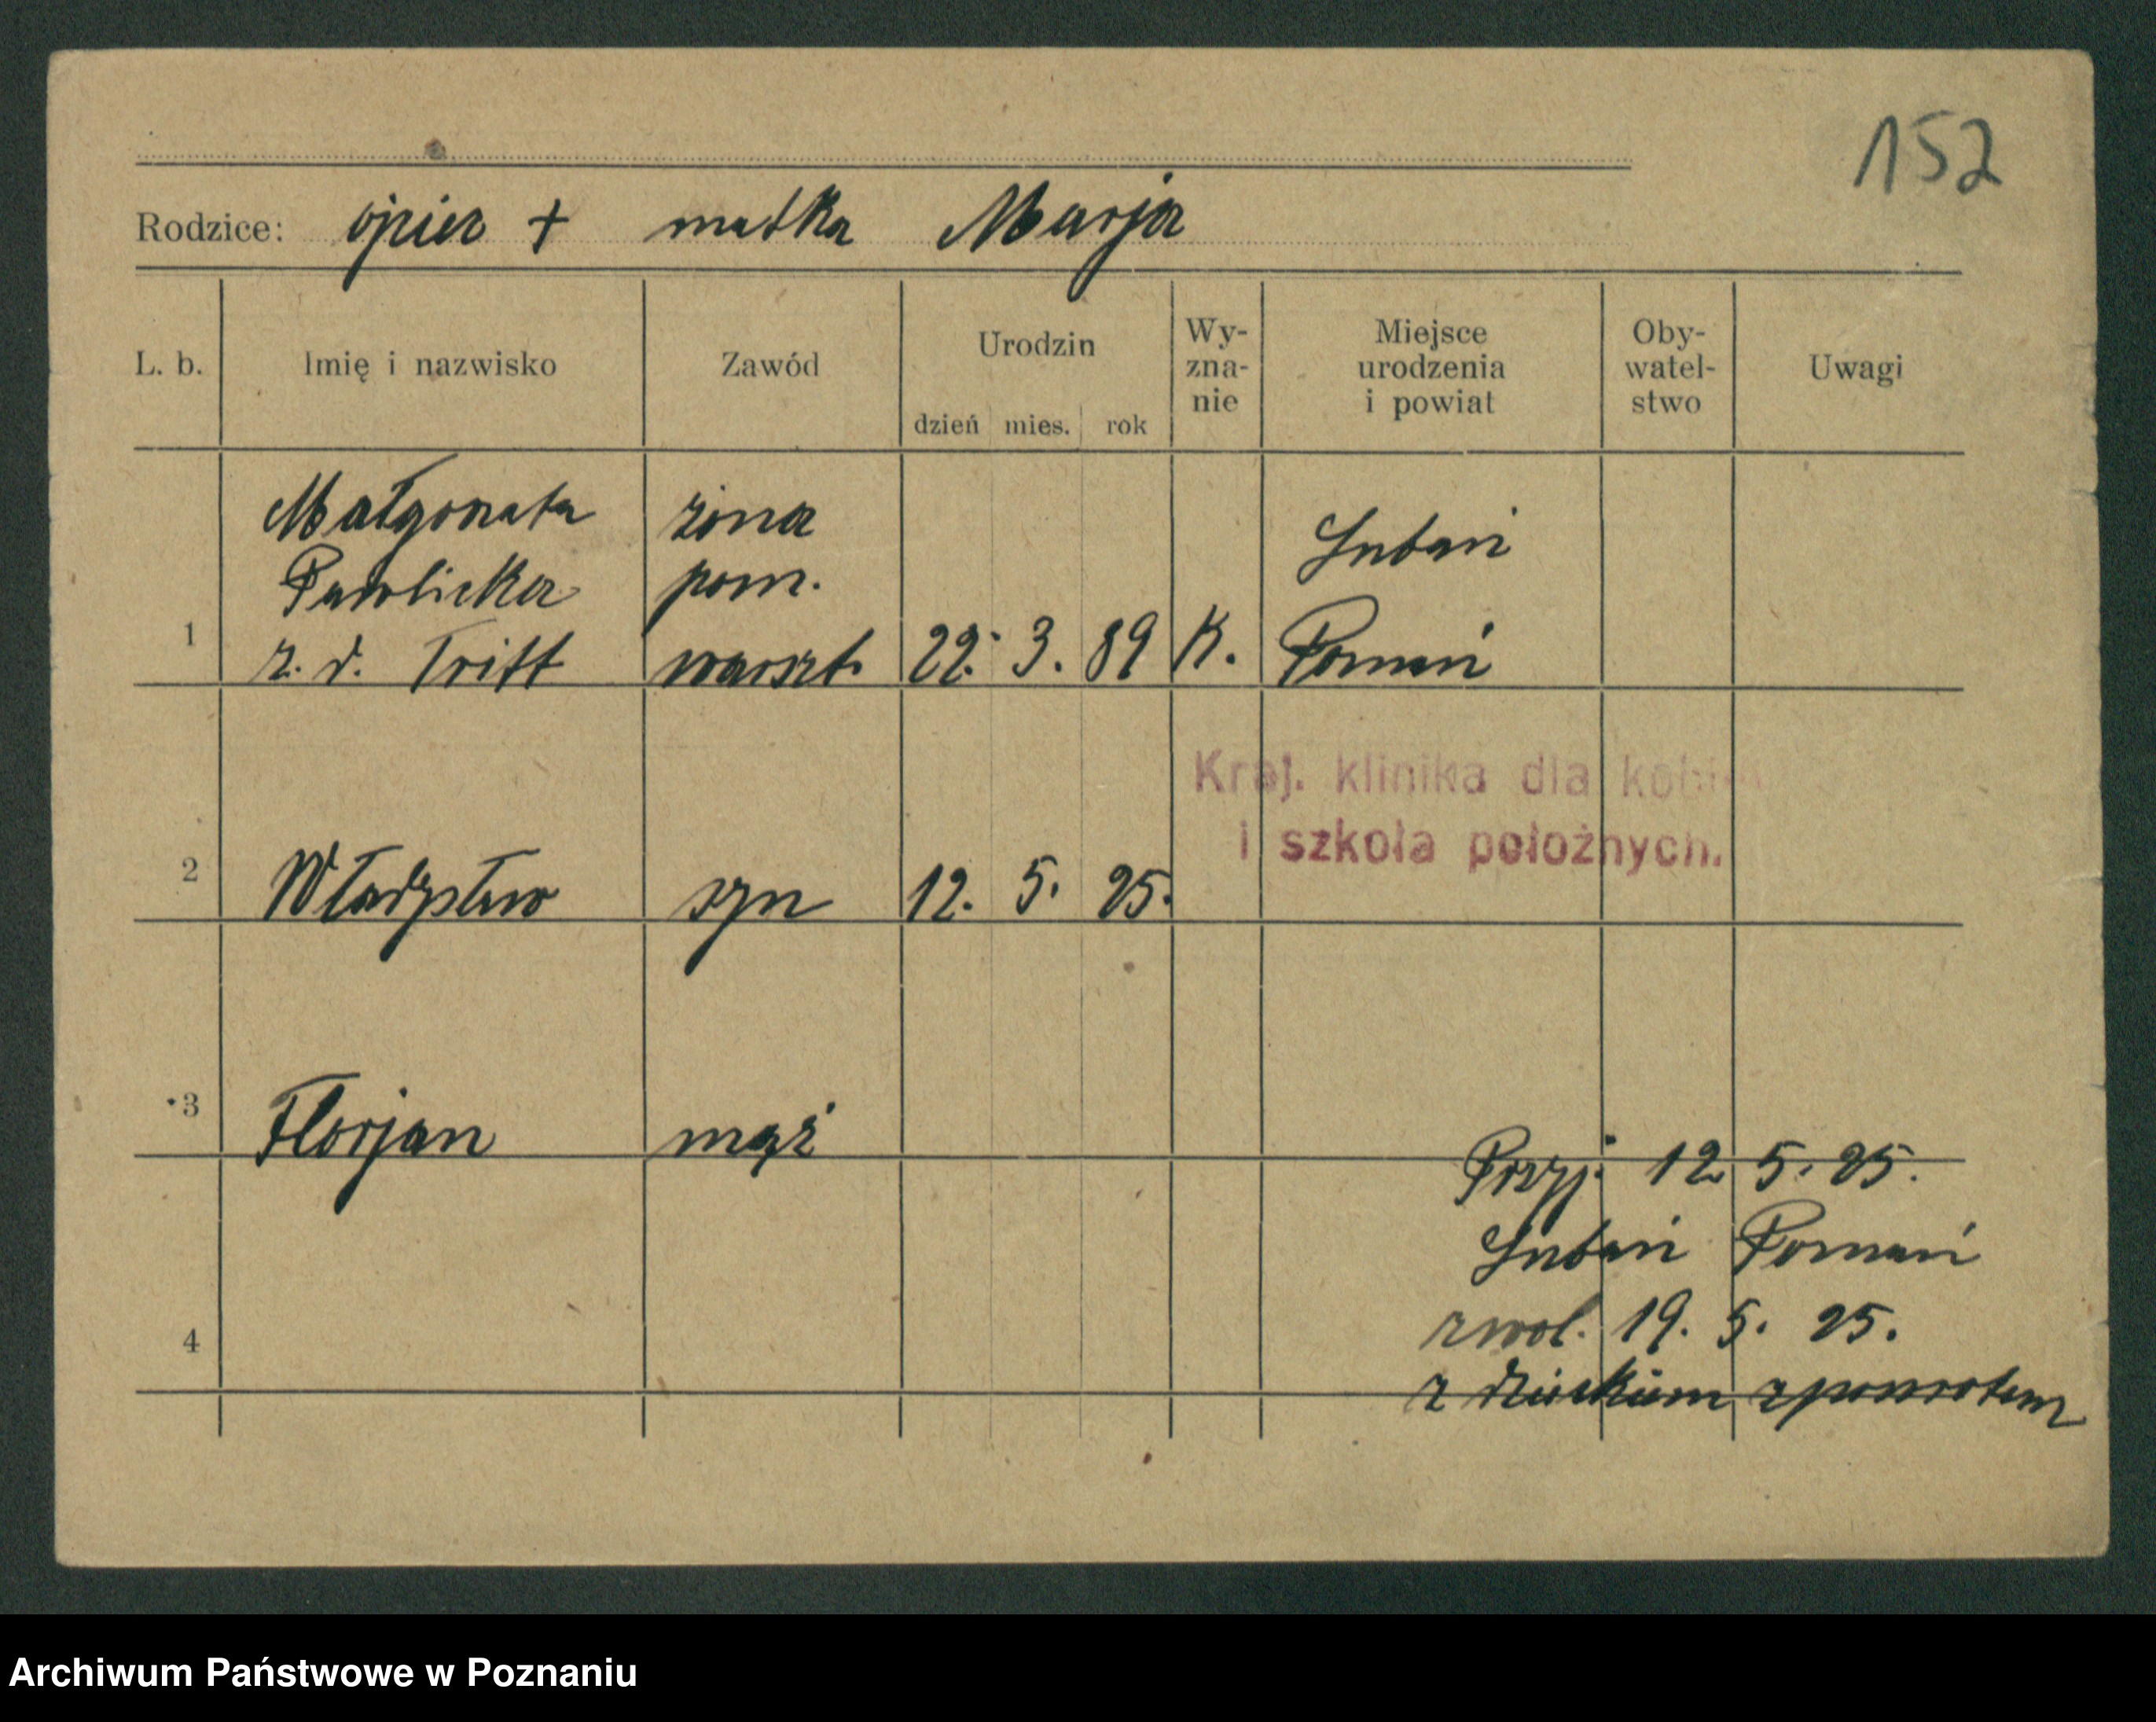 152
Rodzice: ojciec + matka Marja
L. b. Imię i nazwisko Zawód Urodzin dzień mies. rok Wy-zna-nie Miejsce urodzenia i powiat Oby-watel-stwo Uwagi
Małgorzata żona Lubań
Pawlicka pom.
1 z. d. Tritt warszt. 22. 3. 89 K. Poznań
Kraj. klinika dla kobi
i szkoła położnych.
2 Władysław syn 12. 5. 25.
3 Florjan mąż
Przyj. 12 5. 25.
Lubań Poznań
4 zwol. 19. 5. 25.
z dzieckiem zpowrotem
Archiwum Państwowe w Poznaniu